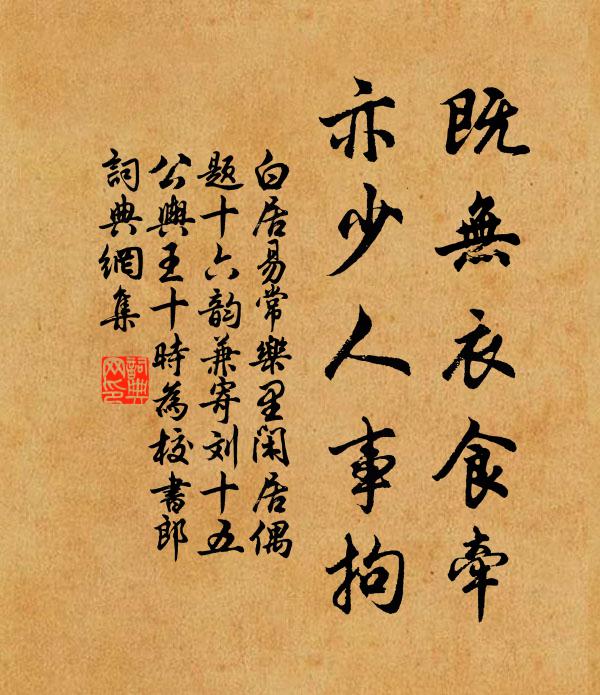 既無衣食牽
亦少人事拘
白居易常樂里閑居偶
题十六韵兼寄刘十五
公輿王十時為校書郎
詞典網集
詞典网印